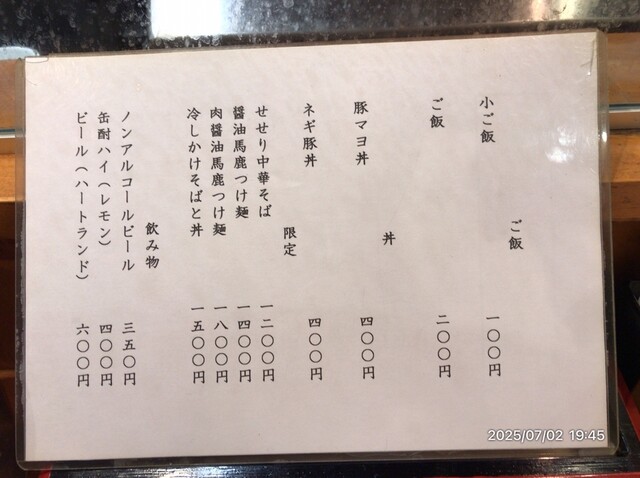 ご飯
小ご飯 一〇〇円
ご飯 二〇〇円
丼
豚マヨ丼 四〇〇円
ネギ豚丼 四〇〇円
限定
せせり中華そば 一二〇〇円
醤油馬鹿つけ麺 一四〇〇円
肉醤油馬鹿つけ麺 一八〇〇円
冷しかけそばと丼 一五〇〇円
飲み物
ノンアルコールビール 三五〇円
缶酎ハイ(レモン) 四〇〇円
ビール(ハートランド) 六〇〇円
2025/07/02 19:45